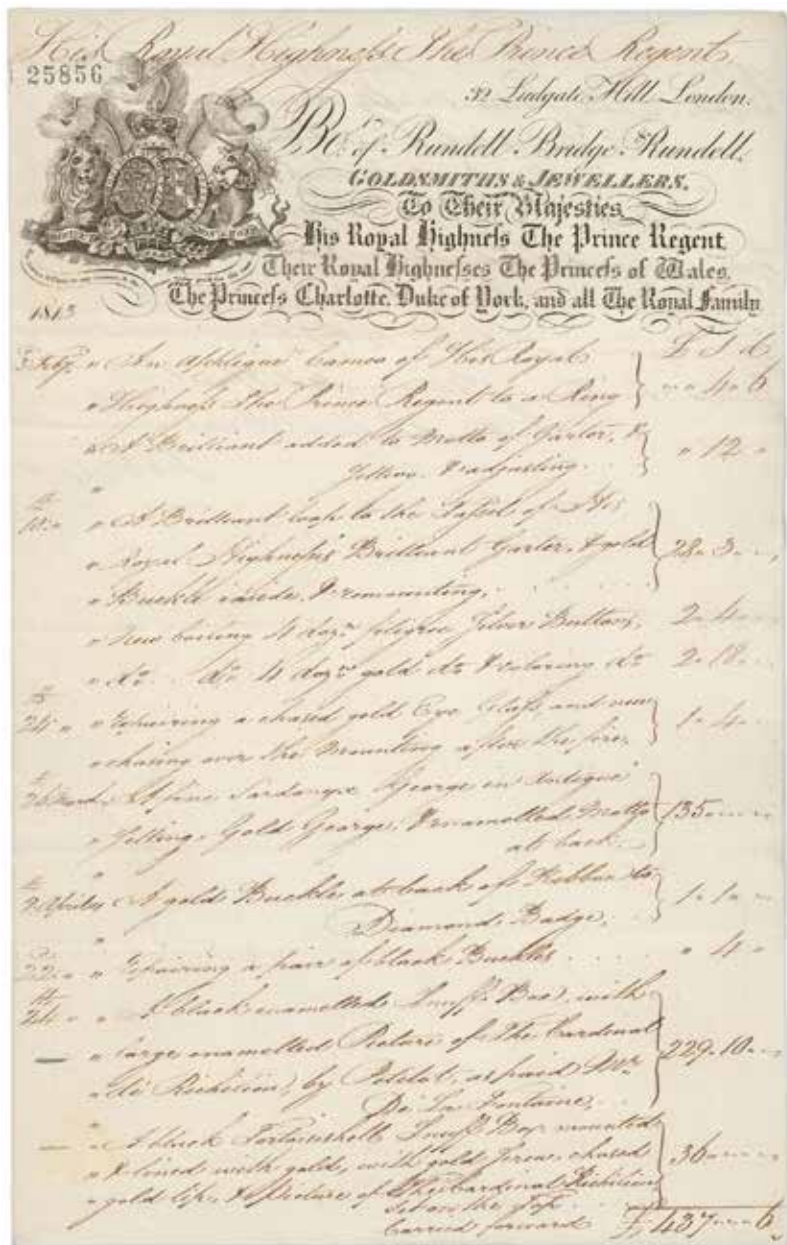 His Royal Highness The Prince Regent.
25856
32 Ludgate Hill London.
Bot. of Rundell Bridge & Rundell.
GOLDSMITHS & JEWELLERS.
To Their Majesties
His Royal Highness The Prince Regent
Their Royal Highnesses The Princess of Wales.
The Princess Charlotte, Duke of York, and all The Royal Family
1813
£ s d
An Cameo of His Royal
" Highness the Prince Regent to a Ring } 4 " 6
" A Brilliant added to Motto of Garter, &
Setting & adjusting } " 12 "
" A Brilliant loop to the Tassel of His
" Royal Highness's Brilliant Garter, & gold } 28 " 3 "
" Buckle inside & remounting,
" New 4 dozn filigree Silver Buttons, 2 " 4 "
" Do. Do 4 dozn gold do & coloring do 2 " 18 "
24 " " Repairing a chased gold Eye Glass, and new
" chasing over the Mounting after the fire, } 1 " 4 "
26 March A fine Sardonyx George in Antique
" Setting, Gold George, & enamelled Motto } 135
at back
April A gold Buckle at back of Ribbon to
Diamond Badge, } 1 " 1 "
22 " " Repairing a pair of black Buckles " 4 "
24 " " A black enamelled Snuff Box, with
" large enamelled Picture of The Cardinal } 229 " 10 "
" de Richelieu, by Petitot, as paid Mr
De La Fontaine,
" A black Tortoiseshell Snuff Box mounted
" & lined with gold, with gold chased } 36
" gold lip, & Picture of The Cardinal Richelieu
set on the Top
Carried forward £ 437 " 6